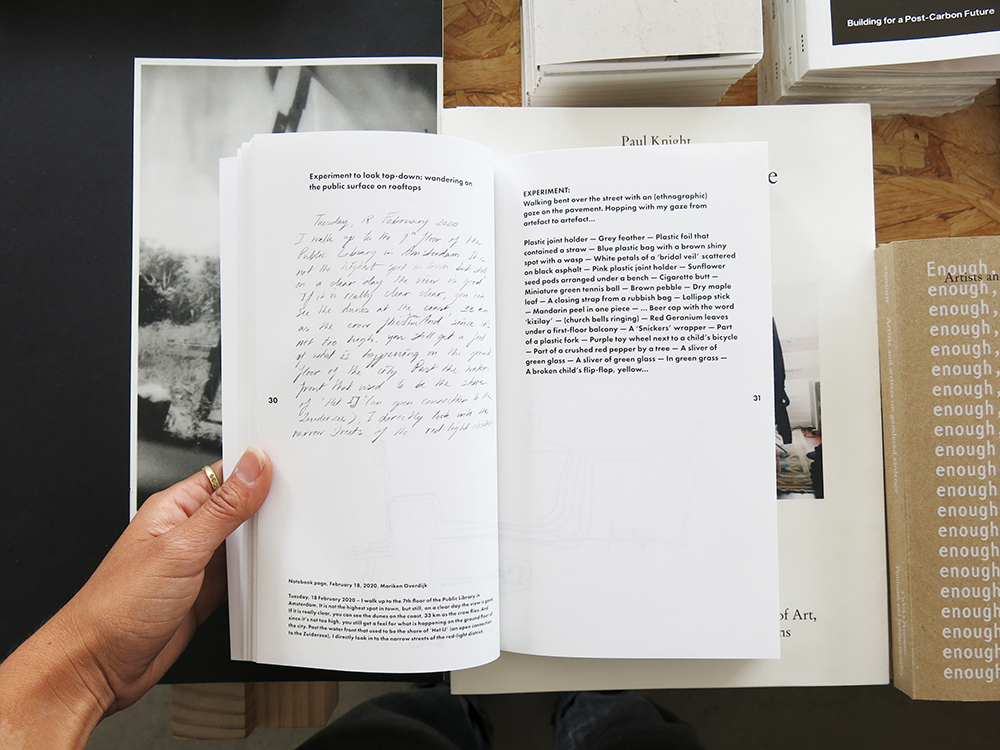 Building for a Post-Carbon Future
Paul Knight
e
of Art,
ns
Experiment to look top-down: wandering on
the public surface on rooftops
Tuesday, 18 February 2020
I walk up to the 7th floor of the
Public Library in Amsterdam. It is
not the highest spot in town but still
on a clear day the view is good.
If it is really clear clear, you can
see the dunes at the coast, 33 km
as the crow flies. And, since it's
not too high, you still get a feel
of what is happening on the ground
floor of the city. Past the water
front that used to be the shore
of 'Het IJ' (an open connection to the
Zuiderzee), I directly look into the
narrow streets of the red light district
30
Notebook page, February 18, 2020, Mariken Overdijk
Tuesday, 18 February 2020 – I walk up to the 7th floor of the Public Library in
Amsterdam. It is not the highest spot in town, but still, on a clear day the view is good.
If it is really clear, you can see the dunes on the coast, 33 km as the crow flies. And
since it's not too high, you still get a feel for what is happening on the ground floor of
the city. Past the water front that used to be the shore of 'Het IJ' (an open connection
to the Zuiderzee), I directly look in to the narrow streets of the red-light district.
EXPERIMENT:
Walking bent over the street with an (ethnographic)
gaze on the pavement. Hopping with my gaze from
artefact to artefact...
Plastic joint holder — Grey feather — Plastic foil that
contained a straw — Blue plastic bag with a brown shiny
spot with a wasp — White petals of a 'bridal veil' scattered
on black asphalt — Pink plastic joint holder — Sunflower
seed pods arranged under a bench — Cigarette butt —
Miniature green tennis ball — Brown pebble — Dry maple
leaf — A closing strap from a rubbish bag — Lollipop stick
— Mandarin peel in one piece — ... Beer cap with the word
'kizilay' — (church bells ringing) — Red Geranium leaves
under a first-floor balcony — A 'Snickers' wrapper — Part
of a plastic fork — Purple toy wheel next to a child's bicycle
— Part of a crushed red pepper by a tree — A sliver of
green glass — A sliver of green glass — In green grass —
A broken child's flip-flop, yellow...
31
Artists and writers on gendered violence
Artists an
Enough,
enough,
enough,
enough,
enough,
enough,
enough,
enough,
enough,
enough
enough
enough
enough
enough
enough
enough
enough
enough
enough
enough
enough